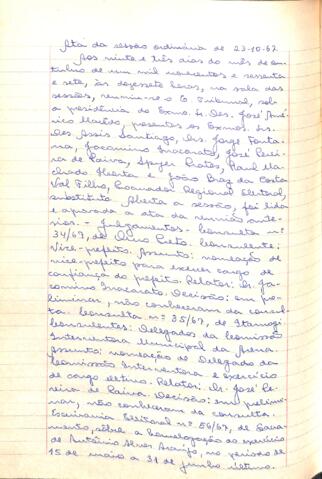 Ata da sessão ordinária de 23-10-67
Aos vinte e três dias do mês de ou-
tubro de um mil novecentos e sessenta
e sete, às dezessete horas, na sala das
sessões, reuniu-se o E. Tribunal, sob
a presidência do Exmo. Sr. Des. José Amé-
rico Macêdo, presentes os Exmos. Srs.
Des. Assis Santiago, Drs. Jorge Fonta-
na, Jacomino Inacarato, José Perei-
ra de Paiva, Raul Ma-
chado Horta e João Braz da Costa
Val Filho, Procurador Regional Eleitoral,
substituto. Aberta a sessão, foi lida
e aprovada a ata da reunião ante-
rior. - Julgamentos - Consulta nº
34/67, de Ouro Preto. Consulente:
Vice-prefeito. Assunto: nomeação de
vice-prefeito para exercer cargo de
confiança do prefeito. Relator: Dr. Ja-
comino Inacarato. Decisão: em pre-
liminar, não conheceram da consul-
ta. Consulta nº 35/67, de Itamogi
Consulentes: Delegados da Comissão
Interventora Municipal da Arena.
Assunto: nomeação de Delegado da
Comissão Interventora e exercício
de cargo eletivo. Relator: Dr. José Pe-
reira de Paiva. Decisão: em prelimi-
nar, não conheceram da consulta.
Escrivania Eleitoral nº 56/67, de
sôbre a homologação do exercício
de Antônio Alves Araújo, no período de
15 de maio a 31 de junho último.